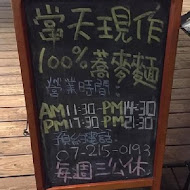 當天現作
100%蕎麥麵
營業時間:
AM11:30-PM14:30
PM17:30-PM21:30
預約專線
07-215-0193
每週三公休